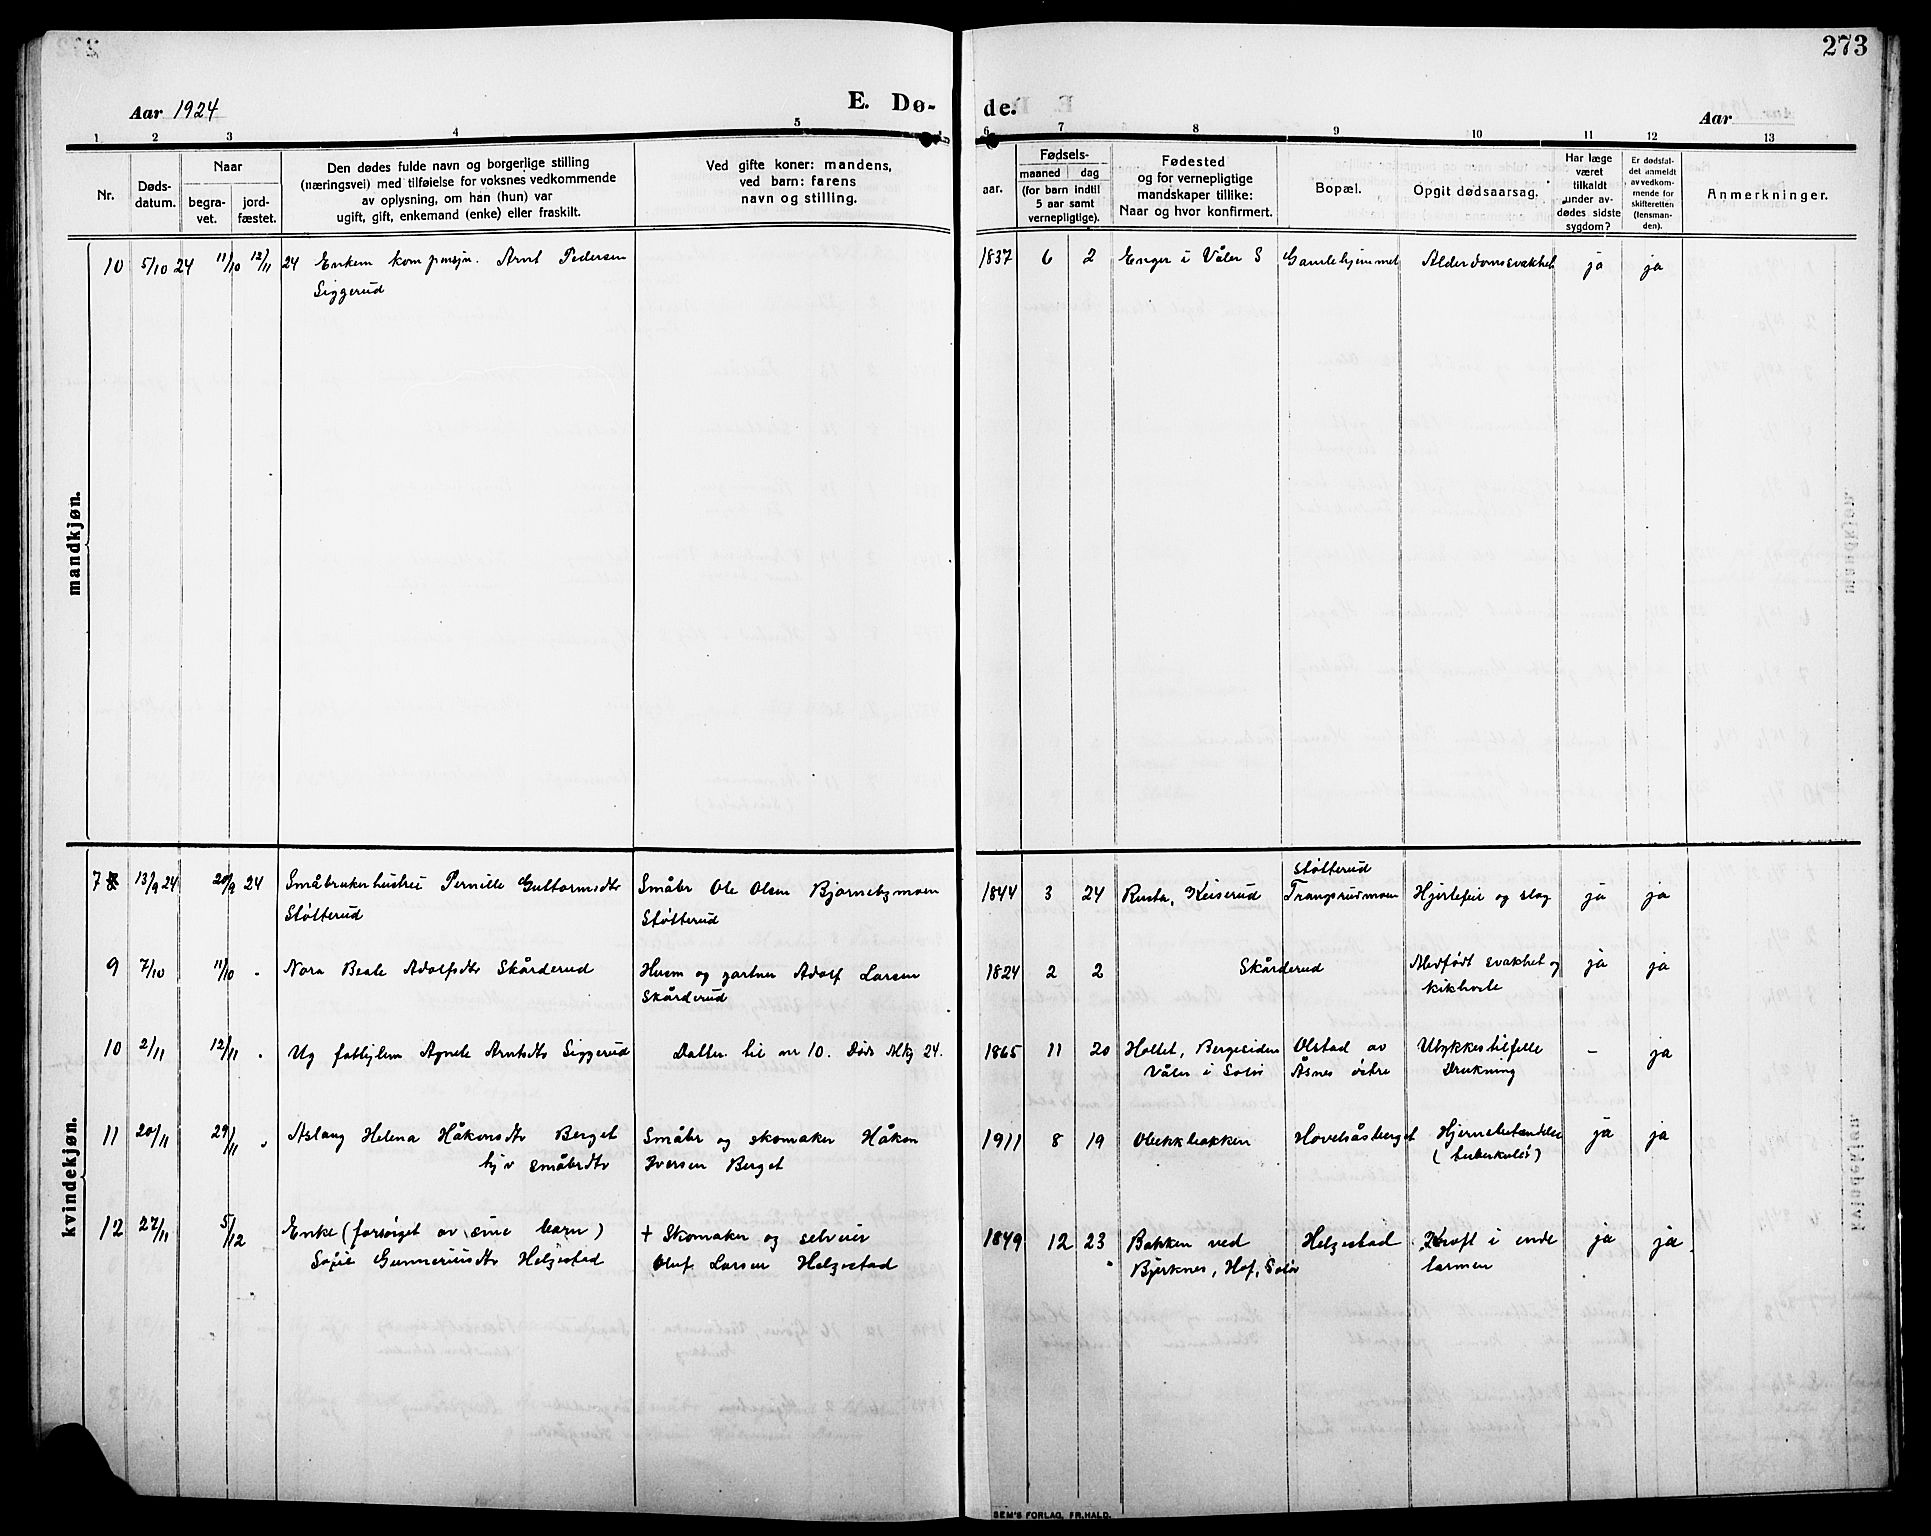 273
Aar 1924
E. Dø-
de.
Aar
1 2 3 4 5 6 7 8 9 10 11 12 13
Nr.
Døds-
datum.
Naar
begra-
vet.
jord-
fæstet.
Den dødes fulde navn og borgerlige stilling
(næringsvei) med tilføielse for voksnes vedkommende
av oplysning, om han (hun) var
ugift, gift, enkemand (enke) eller fraskilt.
Ved gifte koner: mandens,
ved barn: farens
navn og stilling.
aar.
Fødsels-
maaned dag
(for barn indtil
5 aar samt
vernepligtige).
Fødested
og for vernepligtige
mandskaper tillike:
Naar og hvor konfirmert.
Bopæl.
Opgit dødsaarsag.
Har læge
været
tilkaldt
under av-
dødes sidste
sygdom?
Er dødsfal-
det anmeldt
av vedkom-
mende for
skifteretten
(lensman-
den).
Anmerkninger.
mandkjøn.
10 5/10 24 11/10 12/11 24 Enkem kom pensjn. Arnt Pedersen 1837 6 2 Enger i Våler S Gamlehjemmet Alderdomssvakhet ja ja
Siggerud
kvindekjøn.
Støtterud
7 13/9 24 20/9 24 Småbrukerhustru Pernille Guttormsdtr Småbr Ole Olsen Bjørnebymoen 1844 3 24 Rusta, Keiserud Trangsrudmoen Hjertefeil og slag ja ja
Støtterud Støtterud
9 7/10 11/10 - Nora Beate Adolfsdtr Skårderud Husm og gartner Adolf Larsen 1824 2 2 Skårderud Medfødt svakhet og ja ja
Skårderud kikhoste
10 2/11 12/11 - Ug fattiglem Agnete Arntsdtr Siggerud Datter til nr 10. Døde Mkj 24. 1865 11 20 Holtet, Bergesiden Olstad av Ulykkestilfelle - ja
Våler i Solør Åsnes østre Drukning
11 20/11 29/11 - Aslaug Helena Håkonsdtr Berget Småbr og skomaker Håkon 1911 8 19 Olebekkbakken Hovelsåsberget Hjernebetændelse ja ja
hjv småbrdtr Iversen Berget (tuberkuløs)
12 27/11 5/12 Enke (forsørget av sine barn) + Skomaker og selveier 1849 12 23 Bakken ved Helgestad Kræft i ende ja ja
Sofie Gunneriusdtr Helgestad Oluf Larsen Helgestad Bjerknes, Hof, Solør tarmen
SEM'S FORLAG, FR.HALD.